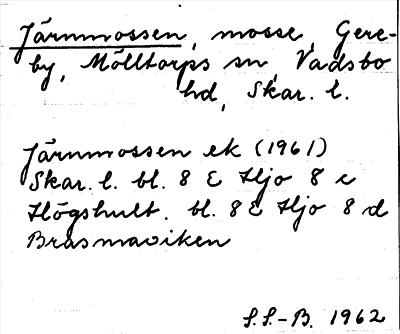 Järnmossen, mosse, Gere-
by, Mölltorps sn, Vadsbo
hd, Skar. l.
Järnmossen ek (1961)
Skar. l. bl. 8 E Hjo 8 c
Högshult. bl. 8E Hjo 8 d
Brasmaviken
S.S.-B. 1962